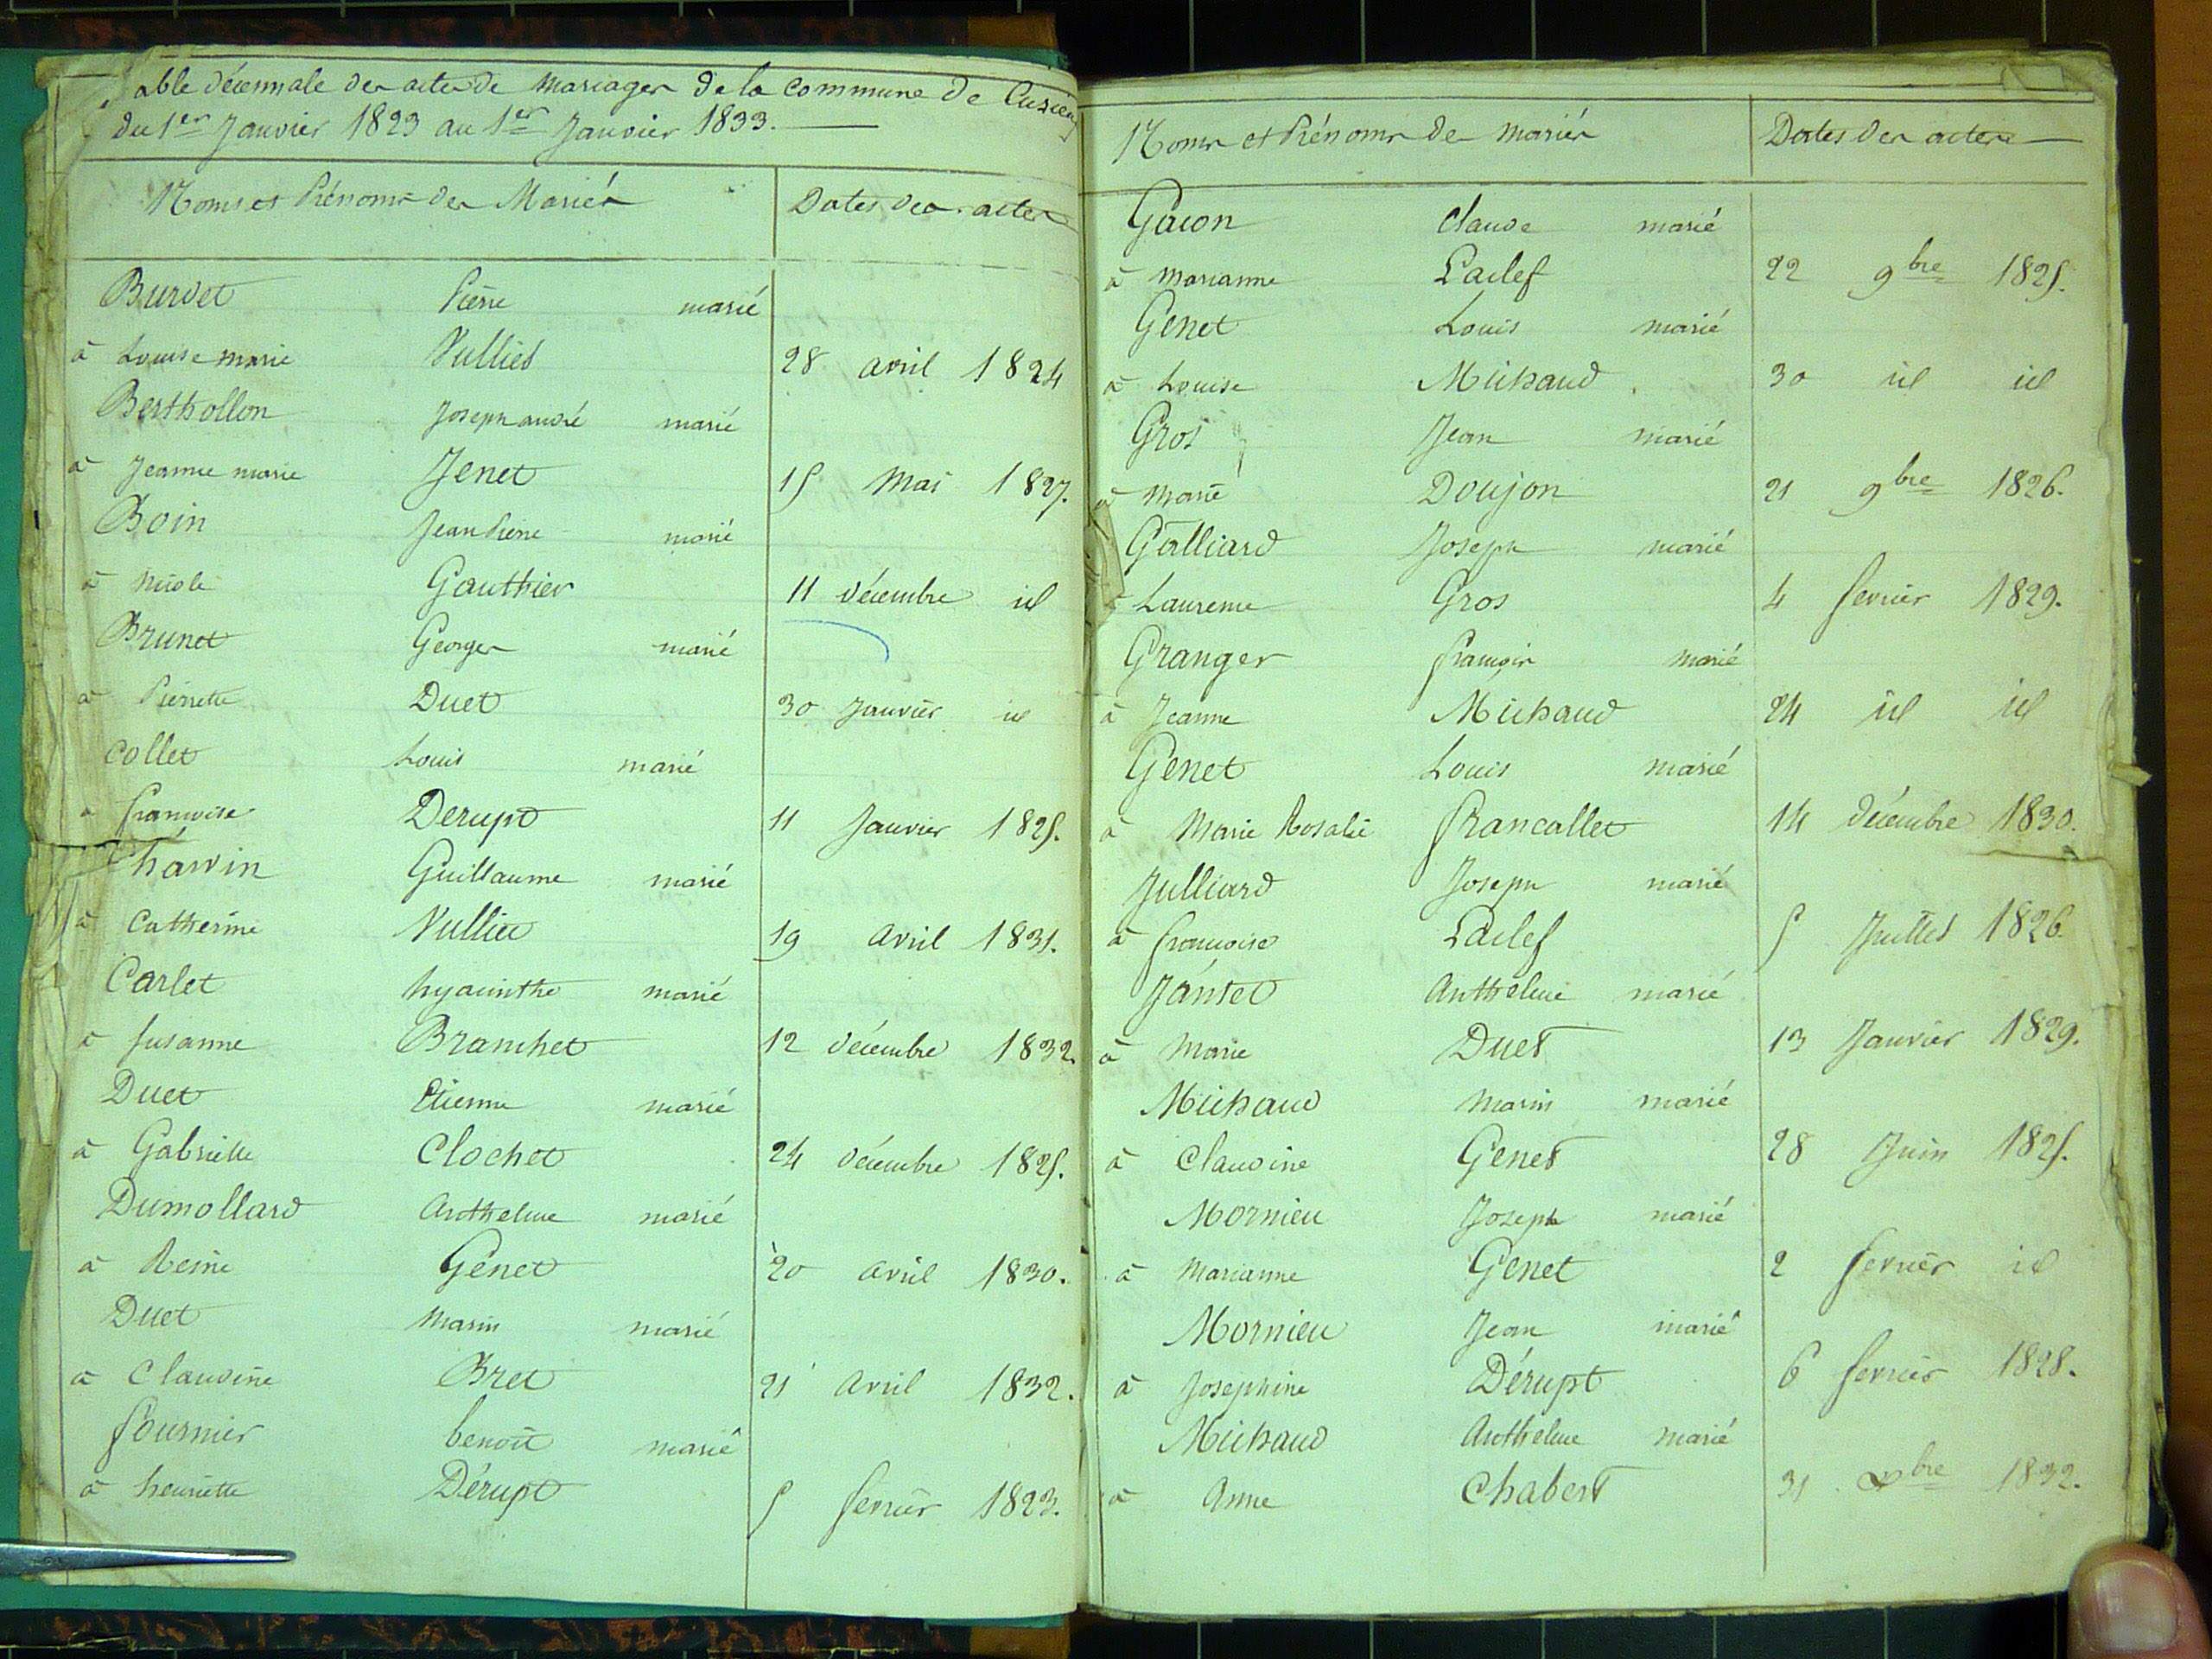 able décennale des actes de Mariages de la commune de Cuzieu
du 1er Janvier 1823 au 1er Janvier 1833.
Noms et Prénoms des Mariés Dates des actes
Burdet Pierre marié
à Louise marie Vulliet 28 avril 1824
Berthollon Joseph andré marié
à Jeanne marie Jenet 15 Mai 1827.
Boin Jean Pierre marié
à Nicole Gauthier 11 décembre id
Brunet Georges marié
à Pierrette Duet 30 Janvier id
Collet Louis marié
à françoise Derupt 11 Janvier 1825.
Charvin Guillaume marié
à Catherine Vulliet 19 avril 1831.
Carlet hyacinthe marié
à Susanne Branchet 12 décembre 1832.
Duet Etienne marié
à Gabrielle Clochet 24 décembre 1825.
Dumollard Anthelme marié
à Reine Genet 20 avril 1830.
Duet Marin marié
à Claudine Bret 21 Avril 1832.
fournier benoit marié
à henriette Dérupt 5 fevrier 1823.
Noms et Prénoms de mariés Dates des actes
Gacon Claude marié
à Marianne Laclef 22 9bre 1825.
Genet Louis marié
à Louise Michaud 30 id id
Gros Jean marié
à Marie Doujon 21 9bre 1826.
Galliard Joseph marié
à Laurence Gros 4 fevrier 1829.
Granger françois marié
à Jeanne Michaud 24 id id
Genet Louis marié
à Marie Rosalie francallet 14 décembre 1830.
Julliard Joseph marié
à françoise Laclef 5 Juillet 1826.
Jantet Anthelme marié
à Marie Duet 13 Janvier 1829.
Michaud Marin marié
à Claudine Genet 28 Juin 1825.
Mornieu Joseph marié
à Marianne Genet 2 fevrier id
Mornieu Jean marié
à Josephine Dérupt 6 fevrier 1828.
Michaud Anthelme marié
à Anne Chabert 31 Xbre 1832.